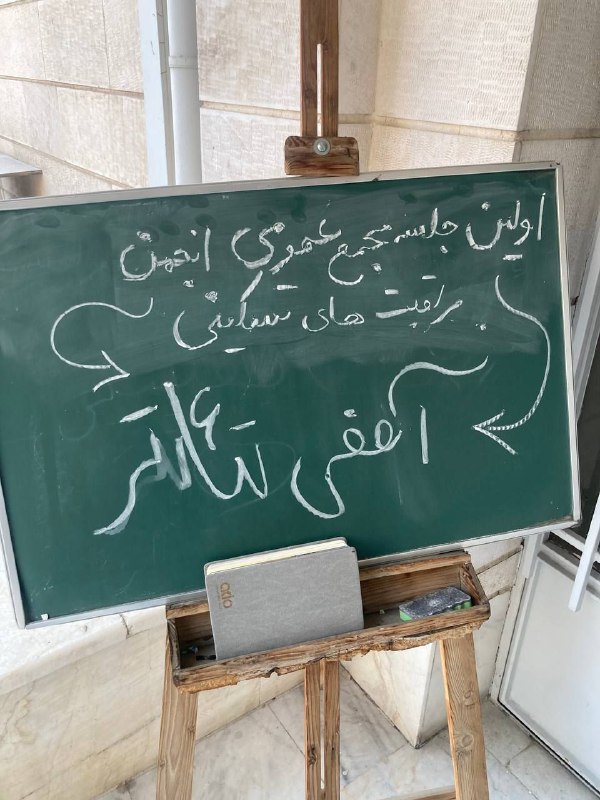 اولین جلسه مجمع عمومی انجمن
مراقبت های تسکینی
آمفی تئاتر